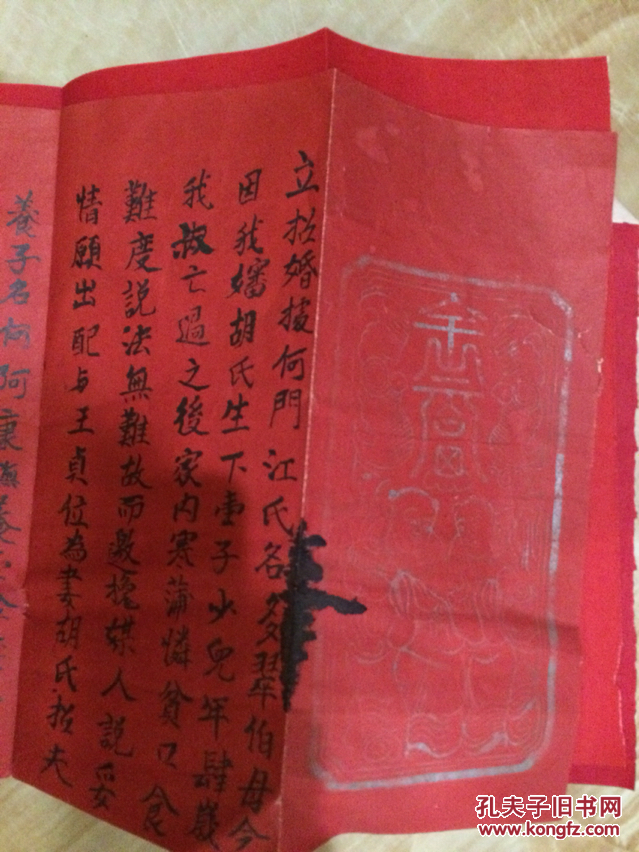 立招婚據何門江氏各 翠伯母今
因我嬸胡氏生下壹子少兒年肆歲
我叔亡過之後家内寒蒲憐貧口食
難度説法無難故而邀挽媒人説妥
情願出配与王貞位為妻胡氏招夫
養子名 阿康
孔夫子旧书网
www.kongfz.com